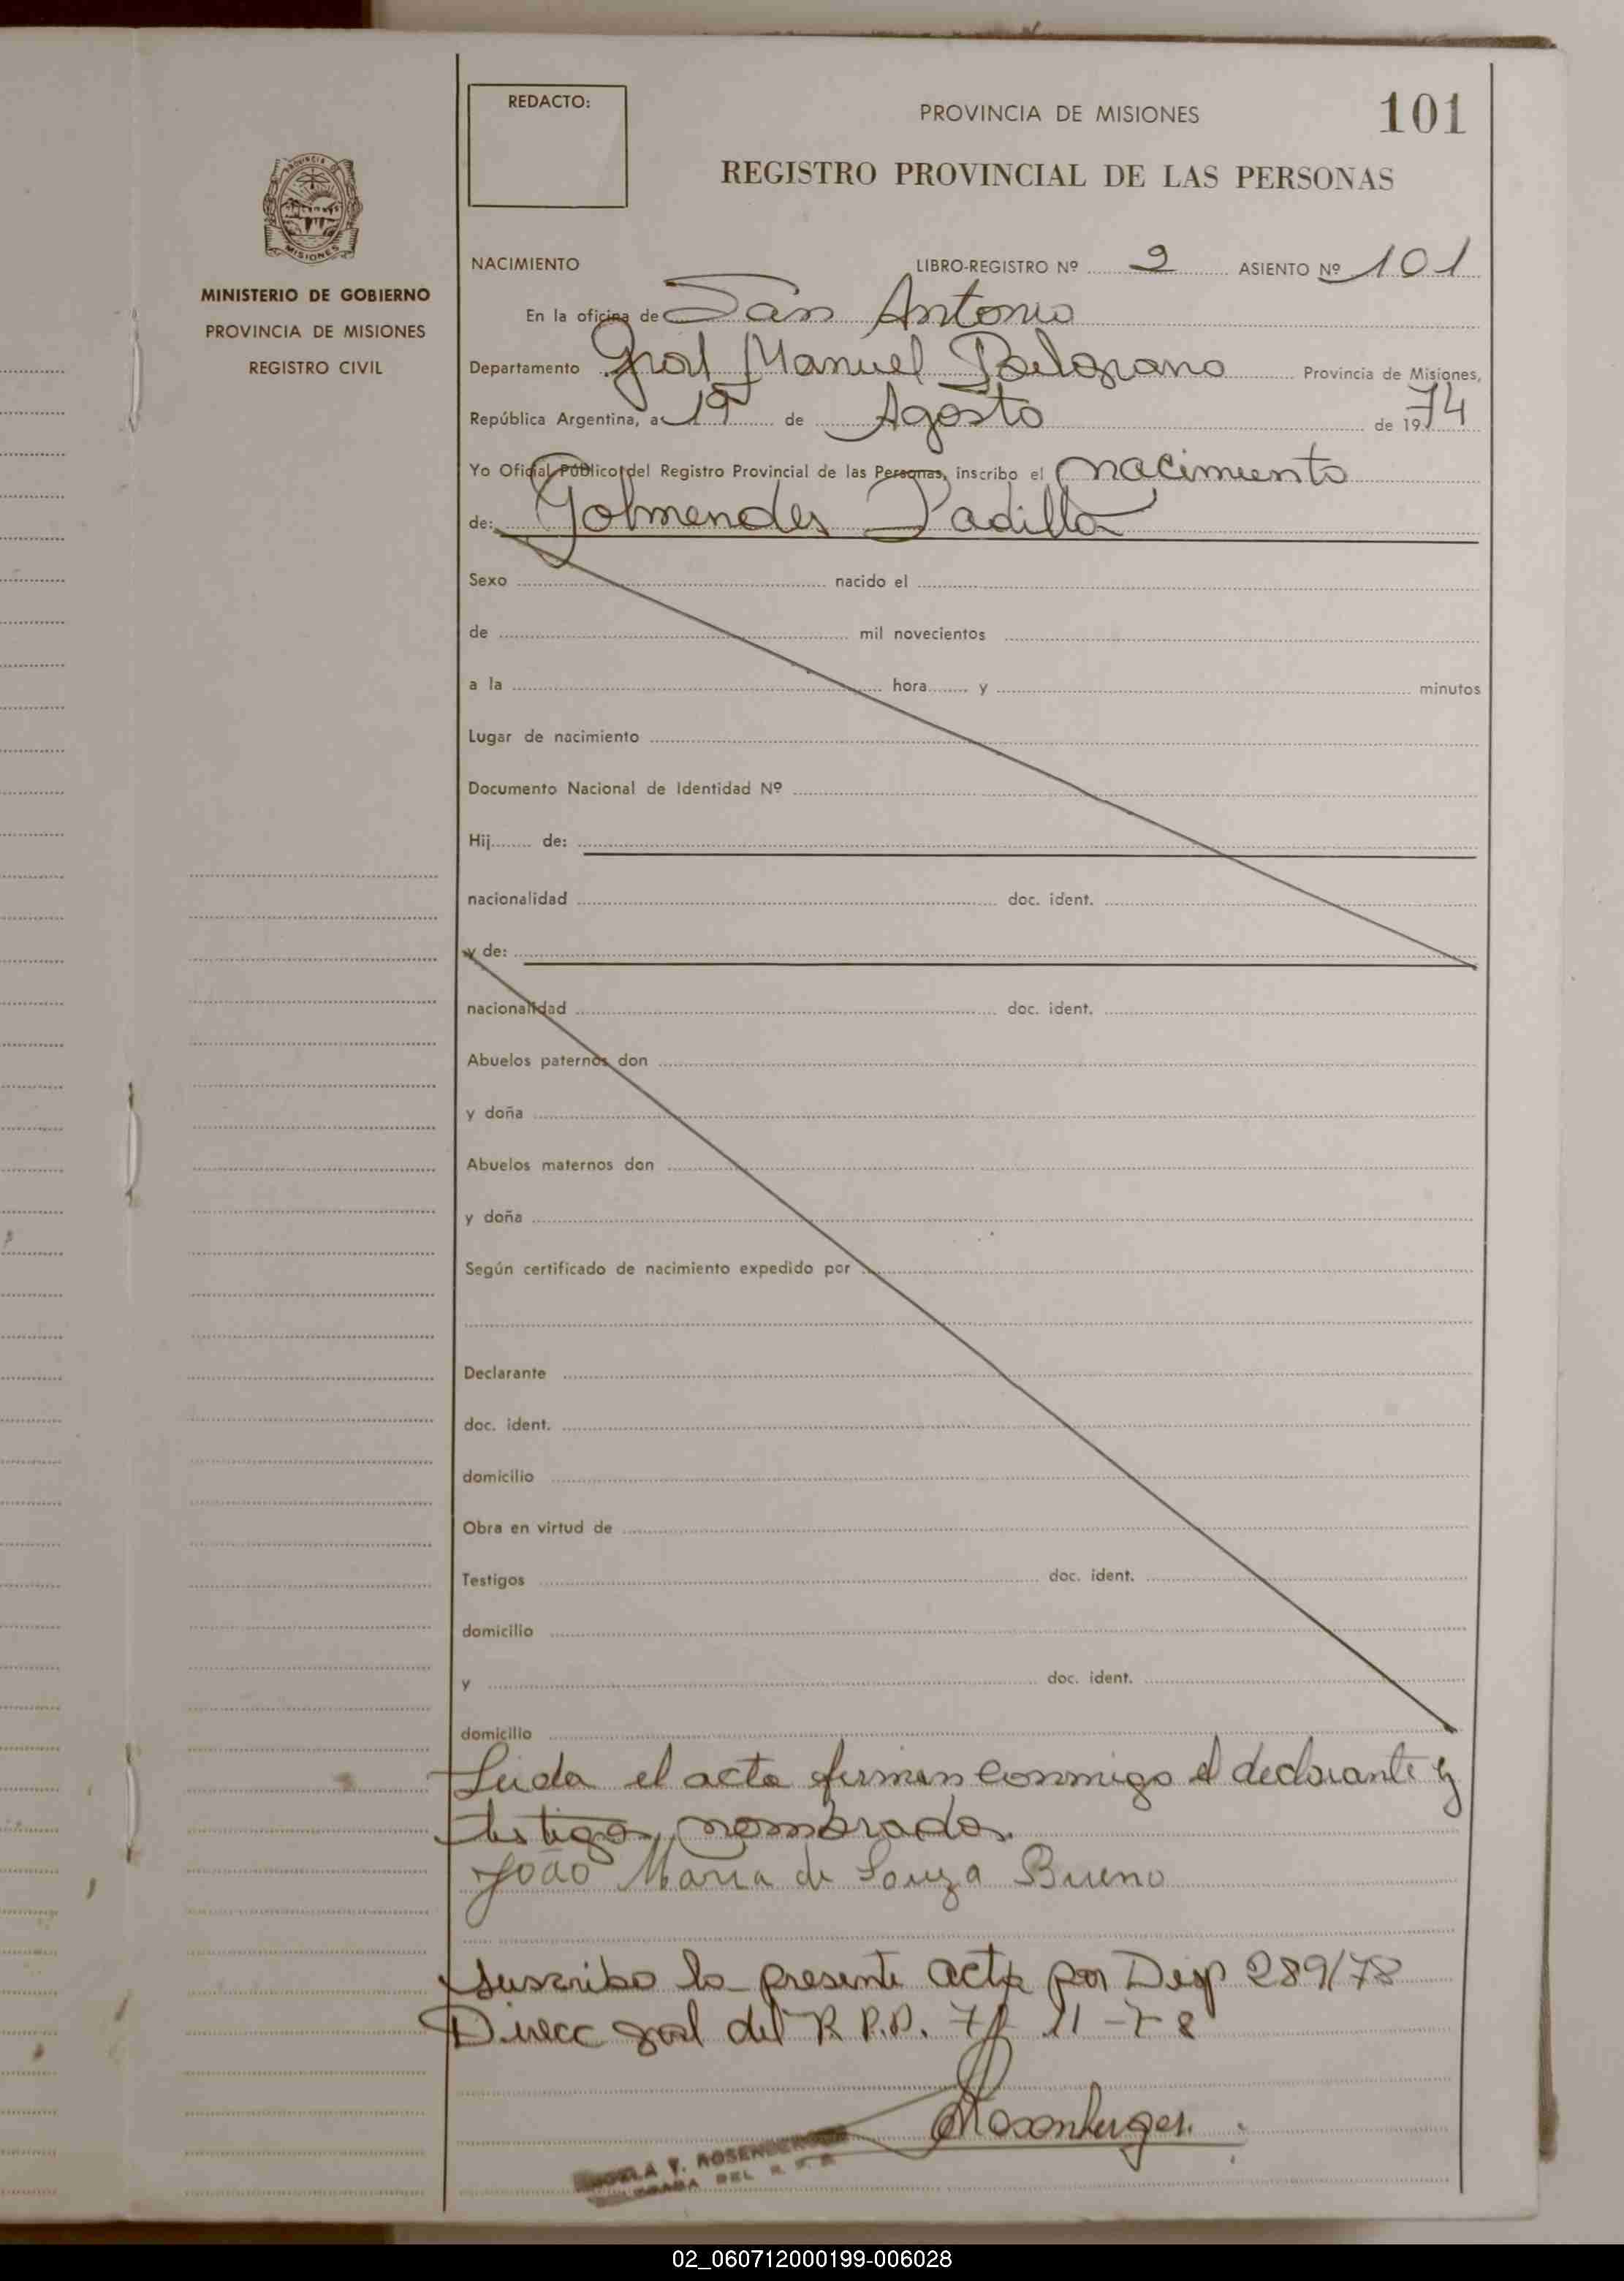 REDACTO:
PROVINCIA DE MISIONES
101
REGISTRO PROVINCIAL DE LAS PERSONAS
PROVINCIA DE
MISIONES
MINISTERIO DE GOBIERNO
PROVINCIA DE MISIONES
REGISTRO CIVIL
NACIMIENTO LIBRO-REGISTRO Nº 2 ASIENTO Nº 101
En la oficina de San Antonio
Departamento Gral Manuel Belgrano Provincia de Misiones,
República Argentina, a 19 de Agosto de 1974
Yo Oficial Público del Registro Provincial de las Personas, inscribo el nacimiento
de: Golmendes Padilla
Sexo nacido el
de mil novecientos
a la hora y minutos
Lugar de nacimiento
Documento Nacional de Identidad Nº
Hij de:
nacionalidad doc. ident.
y de:
nacionalidad doc. ident.
Abuelos paternos don
y doña
Abuelos maternos don
y doña
Según certificado de nacimiento expedido por
Declarante
doc. ident.
domicilio
Obra en virtud de
Testigos doc. ident.
domicilio
y doc. ident.
domicilio
Leida el acta firman conmigo el declarante y
testigos nombrados.
João Maria de Souza Bueno
Suscribo la presente acta por Disp 289/78
Direcc gral del R.P.P. 11-78
Rosenberger.
ROSENBERGER
DEL R. P. P.
02_060712000199-006028